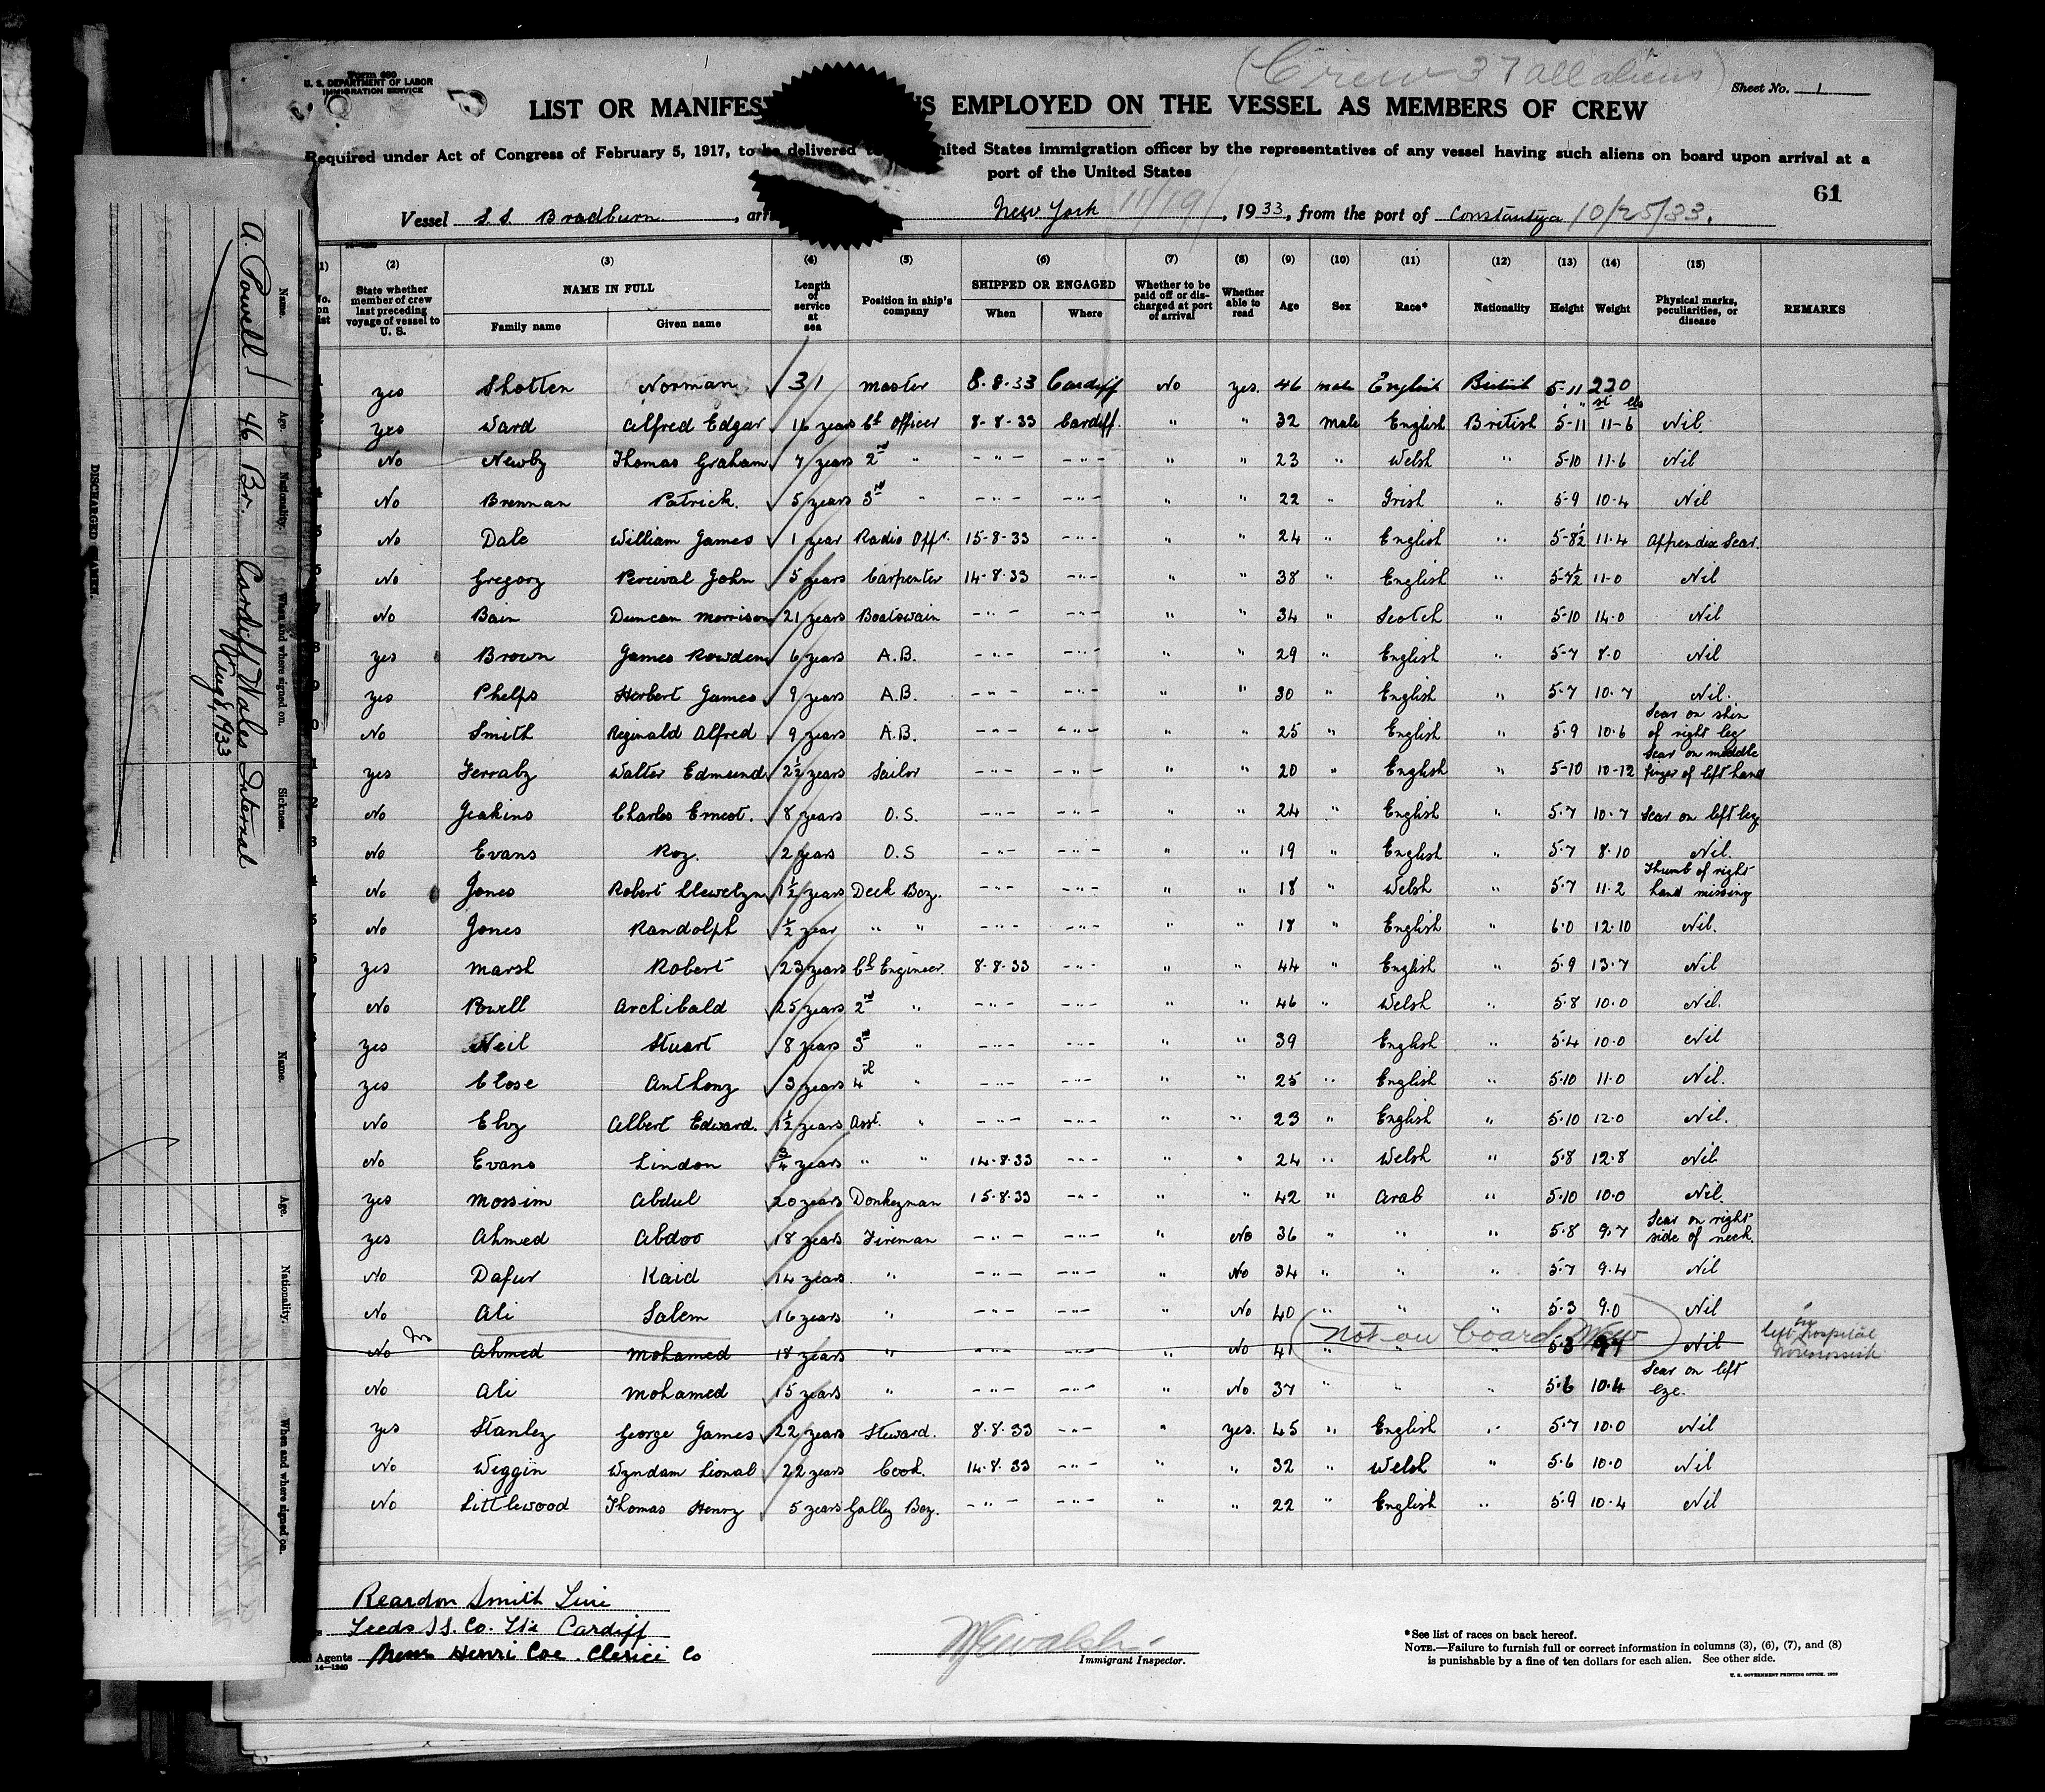 (Crew 37 all aliens)
U. S. DEPARTMENT OF LABOR
IMMIGRATION SERVICE
Sheet No. 1
LIST OR MANIFES EMPLOYED ON THE VESSEL AS MEMBERS OF CREW
Required under Act of Congress of February 5, 1917, to be delivered United States immigration officer by the representatives of any vessel having such aliens on board upon arrival at a
port of the United States
61
Vessel S.S. Bradburn, arri New York 11/19/, 1933, from the port of Constantza 10/25/33.
(1) (2) (3) (4) (5) (6) (7) (8) (9) (10) (11) (12) (13) (14) (15)
No. on list State whether member of crew last preceding voyage of vessel to U. S. NAME IN FULL Family name Given name Length of service at sea Position in ship's company SHIPPED OR ENGAGED When Where Whether to be paid off or discharged at port of arrival Whether able to read Age Sex Race* Nationality Height Weight Physical marks, peculiarities, or disease REMARKS
1 yes Shotten Norman 31 master 8.8.33 Cardiff No yes. 46 male English British 5-11 220
st lbs
2 yes Ward Alfred Edgar 16 years Ch Officer 8-8-33 Cardiff. " " 32 male English British 5-11 11-6 Nil.
3 No Newby Thomas Graham 7 years 2nd " -"- -"- " " 23 " Welsh " 5-10 11.6 Nil
4 No Brennan Patrick. 5 years 3rd " -"- -"- " " 22 " Irish " 5-9 10-4 Nil
5 No Dale William James 1 year Radio Offr. 15-8-33 -"- " " 24 " English " 5-8½ 11.4 Appendix Scar.
6 No Gregory Percival John 5 years Carpenter 14-8-33 -"- " " 38 " English " 5-7½ 11-0 Nil
7 No Bain Duncan Morrison 21 years Boatswain -"- -"- " " 34 " Scotch " 5-10 14.0 Nil
8 yes Brown James Rowden 6 years A.B. -"- -"- " " 29 " English " 5-7 8.0 Nil
9 yes Phelps Herbert James 9 years A.B. -"- -"- " " 30 " English " 5-7 10.7 Nil.
0 No Smith Reginald Alfred 9 years A.B. -"- -"- " " 25 " English " 5.9 10.6 Scar on shin of right leg
1 yes Ferraby Walter Edmund 2½ years Sailor -"- -"- " " 20 " English " 5-10 10-12 Scar on middle finger of left hand
2 No Jeakins Charles Ernest. 8 years O.S. -"- -"- " " 24 " English " 5.7 10.7 Scar on left leg
3 No Evans Roy. 2 years O.S -"- -"- " " 19 " English " 5.7 8.10 Nil.
4 No Jones Robert Llewelyn 1½ years Deck Boy. -"- -"- " " 18 " Welsh " 5.7 11.2 Thumb of right hand missing
5 No Jones Randolph ½ year " " -"- -"- " " 18 " English " 6.0 12.10 Nil.
6 yes Marsh Robert 23 years Ch Engineer. 8.8.33 -"- " " 44 " English " 5.9 13.7 Nil
7 No Powell Archibald 25 years 2nd " -"- -"- " " 46 " Welsh " 5.8 10.0 Nil.
8 yes Neil Stuart 8 years 3rd " -"- -"- " " 39 English " 5.4 10.0 Nil
yes Close Anthony 3 years 4th " -"- -"- " " 25 " English " 5.10 11.0 Nil.
No Eloy Albert Edward. 1½ years Asst. " -"- -"- " " 23 " English " 5.10 12.0 Nil.
No Evans Lindon ¾ years " " 14.8.33 -"- " " 24 " Welsh " 5.8 12.8 Nil
yes Mossim Abdul 20 years Donkeyman 15.8.33 -"- " " 42 " Arab " 5.10 10.0 Nil.
yes Ahmed Abdoo 18 years Fireman -"- -"- " No 36 " " " 5.8 9.7 Scar on right side of neck.
No Dafur Kaid 14 years " -"- -"- " No 34 " " " 5.7 9.4 Nil
No Ali Salem 16 years " -"- -"- " No 40 " " " 5.3 9.0 Nil
(not on board) in
No No Ahmed Mohamed 18 years " -"- -"- " No 41 " " " 5.3 9.4 Nil left hospital Novorossisk
No Ali Mohamed 15 years " -"- -"- " No 37 " " 5.6 10.4 Scar on left Eye.
yes Stanley George James 22 years Steward. 8.8.33 -"- " yes. 45 " English " 5.7 10.0 Nil
No Wiggin Wyndam Lional 22 years Cook. 14.8.33 -"- " " 32 " Welsh " 5.6 10.0 Nil
No Littlewood Thomas Henry 5 years Galley Boy. -"- -"- " " 22 " English " 5.9 10.4 Nil
Reardon Smith Line
Leeds S.S. Co. Ltd Cardiff
Agents Henri Coe. Clerici Co
14—1240
Immigrant Inspector.
*See list of races on back hereof.
NOTE.—Failure to furnish full or correct information in columns (3), (6), (7), and (8)
is punishable by a fine of ten dollars for each alien. See other side.
U. S. GOVERNMENT PRINTING OFFICE
DISCHARGED SEAMEN.
Name. Age. Nationality. When and where signed on. Sickness.
A. Powell 46 Br. Cardiff Wales Internal
Aug 8, 1933
Name. Age. Nationality. When and where signed on.